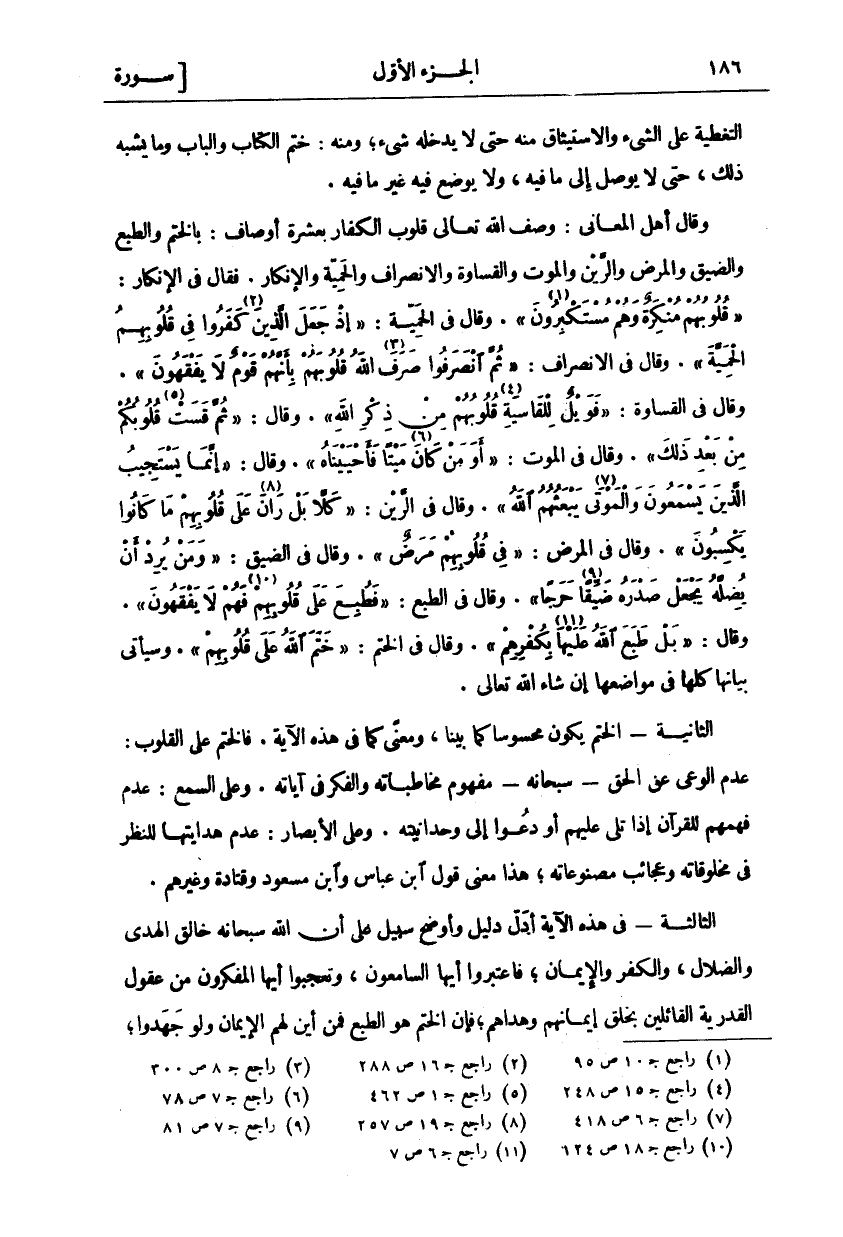 ١٨٦ الجـــزء الأوّل [ ســـورة
التغطية على الشىء والاستيثاق منه حتى لا يدخله شىء؛ ومنه : ختم الكتاب والباب وما يشبه
ذلك ، حتى لا يوصل إلى ما فيه ، ولا يوضع فيه غير ما فيه .
وقال أهل المعـانى : وصف الله تعـالى قلوب الكفار بعشرة أوصاف : بالختم والطبع
والضيق والمرض والرَّيْن والموت والقساوة والانصراف والحَمِيّة والإنكار . فقال فى الإنكار :
« قُلُوبُهُمْ مُنْكِرَةٌ وَهُمْ مُسْتَكْبِرُونَ (١) » . وقال فى الحَمِيّــة : « إِذْ جَعَلَ الَّذِينَ كَفَرُوا (٢) فِى قُلُوبِهِــمُ
الْحَمِيَّةَ » . وقال فى الانصراف : « ثُمَّ ٱنْصَرَفُوا صَرَفَ (٣) اللهُ قُلُوبَهُمْ بِأَنَّهُمْ قَوْمٌ لَا يَفْقَهُونَ » .
وقال فى القساوة : «فَوَيْلٌ لِلْقَاسِيَةِ (٤) قُلُوبُهُمْ مِنْ ذِكْرِ اللهِ» . وقال : « ثُمَّ قَسَتْ (٥) قُلُوبُكُمْ
مِنْ بَعْدِ ذَلِكَ» . وقال فى الموت : « أَوَ مَنْ كَانَ مَيْتًا (٦) فَأَحْيَيْنَاهُ » . وقال : «إِنَّمَـا يَسْتَجِيبُ
الَّذِينَ يَسْمَعُونَ وَالْمَوْتَى (٧) يَبْعَثُهُمُ ٱللهُ » . وقال فى الرَّيْن : « كَلَّا بَلْ رَانَ (٨) عَلَى قُلُوبِهِمْ مَا كَانُوا
يَكْسِبُونَ » . وقال فى المرض : « فِى قُلُوبِهِمْ مَرَضٌ » . وقال فى الضيق : « وَمَنْ يُرِدْ أَنْ
يُضِلَّهُ يَجْعَلْ صَدْرَهُ ضَيِّقًا (٩) حَرَجًا» . وقال فى الطبع : «فَطُبِـعَ عَلَى قُلُوبِهِمْ (١٠) فَهُمْ لَا يَفْقَهُونَ» .
وقال : « بَلْ طَبَعَ ٱللهُ عَلَيْهَا (١١) بِكُفْرِهِمْ » . وقال فى الختم : « خَتَمَ ٱللهُ عَلَى قُلُوبِهِمْ » . وسيأتى
بيانها كلها فى مواضعها إن شاء الله تعالى .
الثانيـــة — الختم يكون محسوسا كما بينا ، ومعنًى كما فى هذه الآية . فالختم على القلوب :
عدم الوعى عن الحق — سبحانه — مفهوم مخاطباته والفكر فى آياته . وعلى السمع : عدم
فهمهم للقرآن إذا تلى عليهم أو دُعُــوا إلى وحدانيته . وعلى الأبصار : عدم هدايتهـا للنظر
فى مخلوقاته وعجائب مصنوعاته ؛ هذا معنى قول ٱبن عباس وٱبن مسعود وقتادة وغيرهم .
الثالثـــة — فى هذه الآية أدَلّ دليل وأوضح سبيل على أن الله سبحانه خالق الهدى
والضلال ، والكفر والإيمـان ؛ فاعتبروا أيها السامعون ، وتعجبوا أيها المفكرون من عقول
القدرية القائلين بخلق إيمـانهم وهداهم ؛ فإن الختم هو الطبع فمن أين لهم الإيمان ولو جَهَدوا؛
(١) راجع ج ١٠ ص ٩٥ (٢) راجع ج ١٦ ص ٢٨٨ (٣) راجع ج ٨ ص ٣٠٠
(٤) راجع ج ١٥ ص ٢٤٨ (٥) راجع ج ١ ص ٤٦٢ (٦) راجع ج ٧ ص ٧٨
(٧) راجع ج ٦ ص ٤١٨ (٨) راجع ج ١٩ ص ٢٥٧ (٩) راجع ج ٧ ص ٨١
(١٠) راجع ج ١٨ ص ٦٢٤ (١١) راجع ج ٦ ص ٧